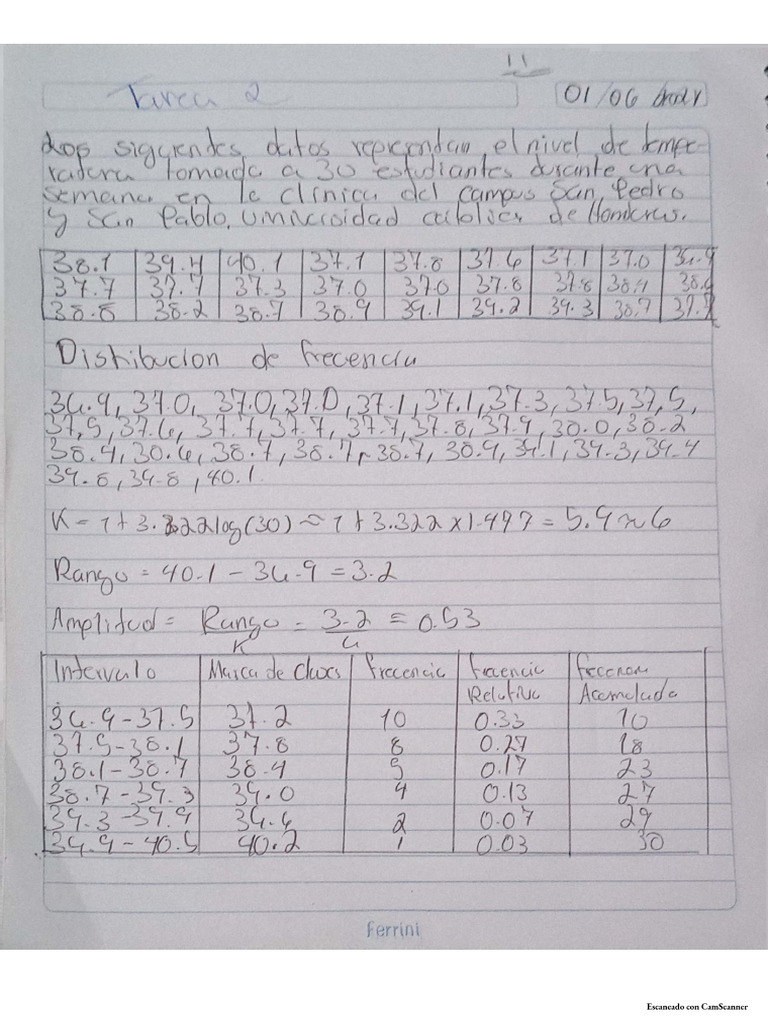 11
Tarea 2 01/06
Los siguientes datos representan el nivel de tempe-
ratura tomada a 30 estudiantes durante una
semana en la clinica del campus San Pedro
y San Pablo, Universidad católica de Honduras.
38.1 39.4 40.1 37.1 37.8 37.6 37.1 37.0 36.9
37.7 37.7 37.3 37.0 37.0 37.8 37.8 38.4 38.6
38.8 38.2 38.7 38.9 39.1 39.2 39.3 38.7
Distribucion de frecencia
36.9, 37.0, 37.0, 37.0, 37.1, 37.1, 37.3, 37.5, 37,5,
37,5, 37.6, 37.7, 37.7, 37.7, 37.8, 37.9, 38.0, 38.2
38.4, 38.6, 38.7, 38.7, 38.7, 38.9, 39.1, 39.3, 39.4
39.8, 39.8, 40.1.
K = 1 + 3.322log(30) ≈ 1 + 3.322 x 1.477 = 5.9 ≈ 6
Rango = 40.1 - 36.9 = 3.2
Amplitud = Rango/K = 3.2/6 = 0.53
Intervalo Marca de Clases Frecencia Frecencia Relativa Acomulada
36.9 - 37.5 37.2 10 0.33 10
37.5 - 38.1 37.8 8 0.27 18
38.1 - 38.7 38.4 5 0.17 23
38.7 - 39.3 39.0 4 0.13 27
39.3 - 39.9 39.6 2 0.07 29
39.9 - 40.5 40.2 1 0.03 30
Ferrini
Escaneado con CamScanner